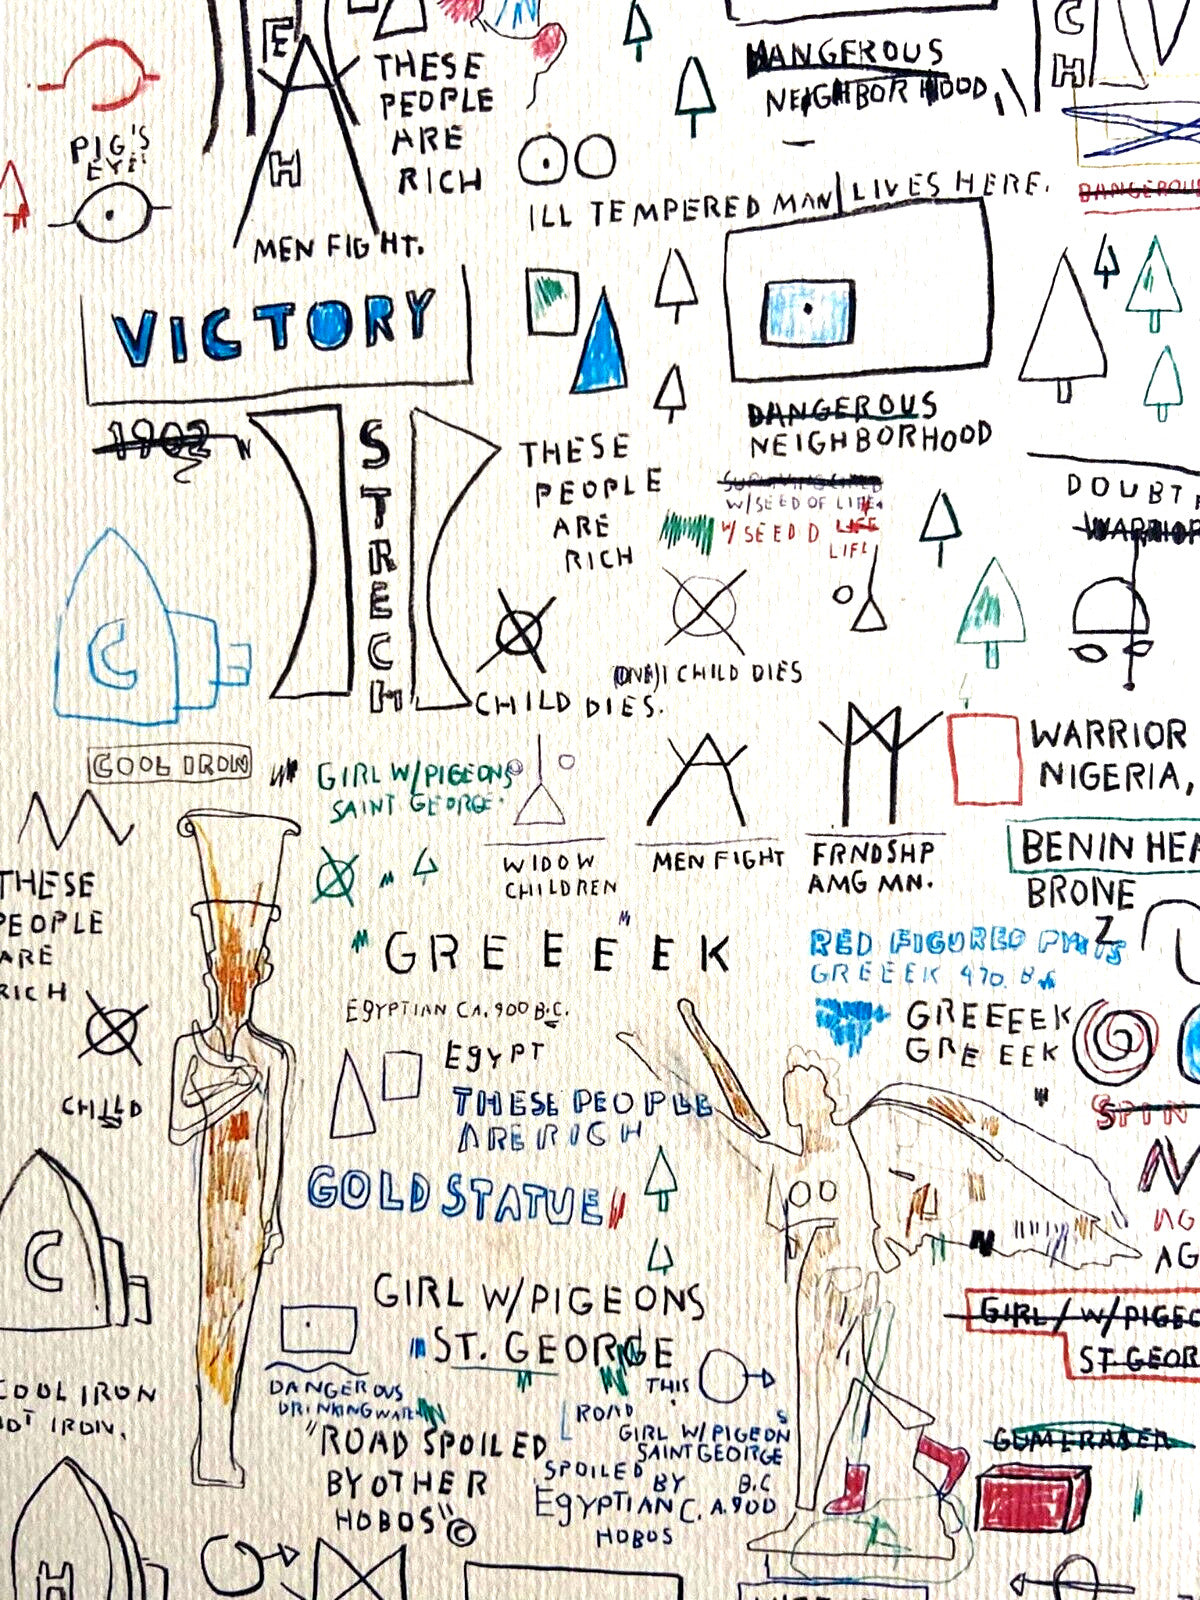 E
H
THESE
PEOPLE
ARE
RICH
MEN FIGHT.
PIG'S
EYE:
DANGEROUS
NEIGHBORHOOD,
C
H
ILL TEMPERED MAN LIVES HERE.
DANGEROUS
VICTORY
1902
STRECH
THESE
PEOPLE
ARE
RICH
DANGEROUS
NEIGHBORHOOD
W/SEED OF LIFE
W/ SEED D LIFE
LIFE
DOUBT
WARRIOR
C
CHILD DIES.
(ONE) 1 CHILD DIES
COOL IRON
GIRL W/PIGEONS
SAINT GEORGE.
WIDOW
CHILDREN
MEN FIGHT
FRNDSHP
AMG MN.
WARRIOR
NIGERIA,
BENIN HEA
BRONE
Z
THESE
PEOPLE
ARE
RICH
CHILD
GREEEEK
EGYPTIAN CA. 900 B.C.
EGYPT
THESE PEOPLE
ARE RICH
GOLD STATUE
RED FIGURED
GREEEK 470. B.
GREEEEK
GREEEK
SPIN
AG
AG
C
COOL IRON
HOT IRON.
GIRL W/PIGEONS
ST. GEORGE
GIRL/W/PIGEO
ST GEOR
DANGEROUS
DRINKING WATER
THIS
ROAD
GIRL W/PIGEONS
SAINT GEORGE
SPOILED
BY
B.C
EGYPTIAN C. A. 900
HOBOS
"ROAD SPOILED
BY OTHER
HOBOS" ©
GUM ERASER
H